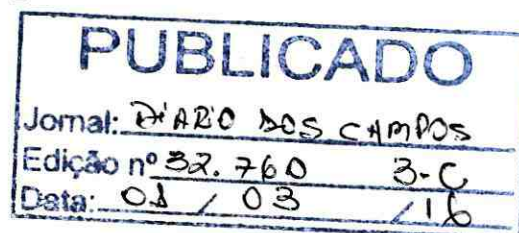 PUBLICADO
Jornal: DIARIO DOS CAMPOS
Edição nº 32.760 3-C
Data: 01 / 03 / 16